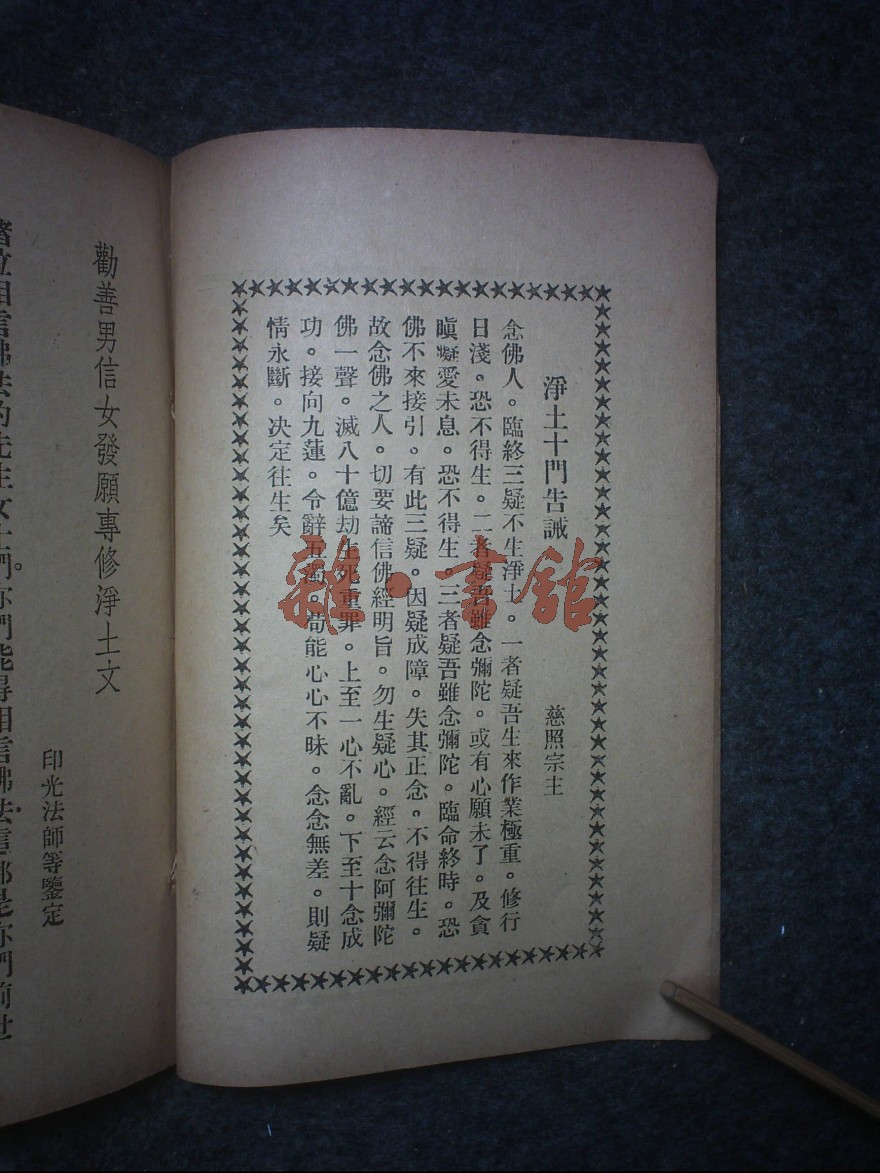 淨土十門告誡
慈照宗主
念佛人。臨終三疑不生淨土。一者疑吾生來作業極重。修行
日淺。恐不得生。二者疑吾雖念彌陀。或有心願未了。及貪
瞋癡愛未息。恐不得生。三者疑吾雖念彌陀。臨命終時。恐
佛不來接引。有此三疑。因疑成障。失其正念。不得往生。
故念佛之人。切要諦信佛經明旨。勿生疑心。經云念阿彌陀
佛一聲。滅八十億劫生死重罪。上至一心不亂。下至十念成
功。接向九蓮。令辭五濁。苟能心心不昧。念念無差。則疑
情永斷。決定往生矣
勸善男信女發願專修淨土文
印光法師等鑒定
相信佛法的先生女士們。你們能得相信佛法。這都是你們前世
雜·書館